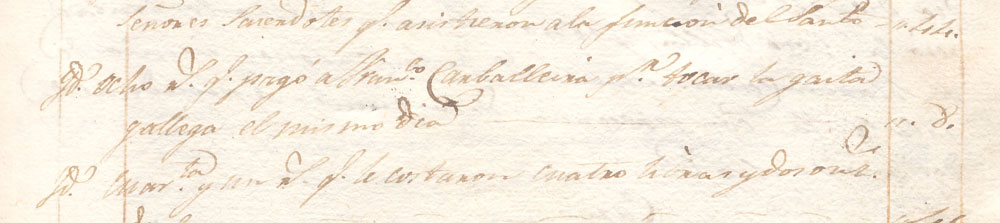 Señores Sacerdotes q.e asistieron a la funcion del Santo
Yd. ocho r.s q.e pagó a Fran.co Carballeira p.r tocar la gaita
gallega el mismo dia 8.
Yd. cuar.ta y un r.s q.e le costaron cuatro libras y dos onz.s